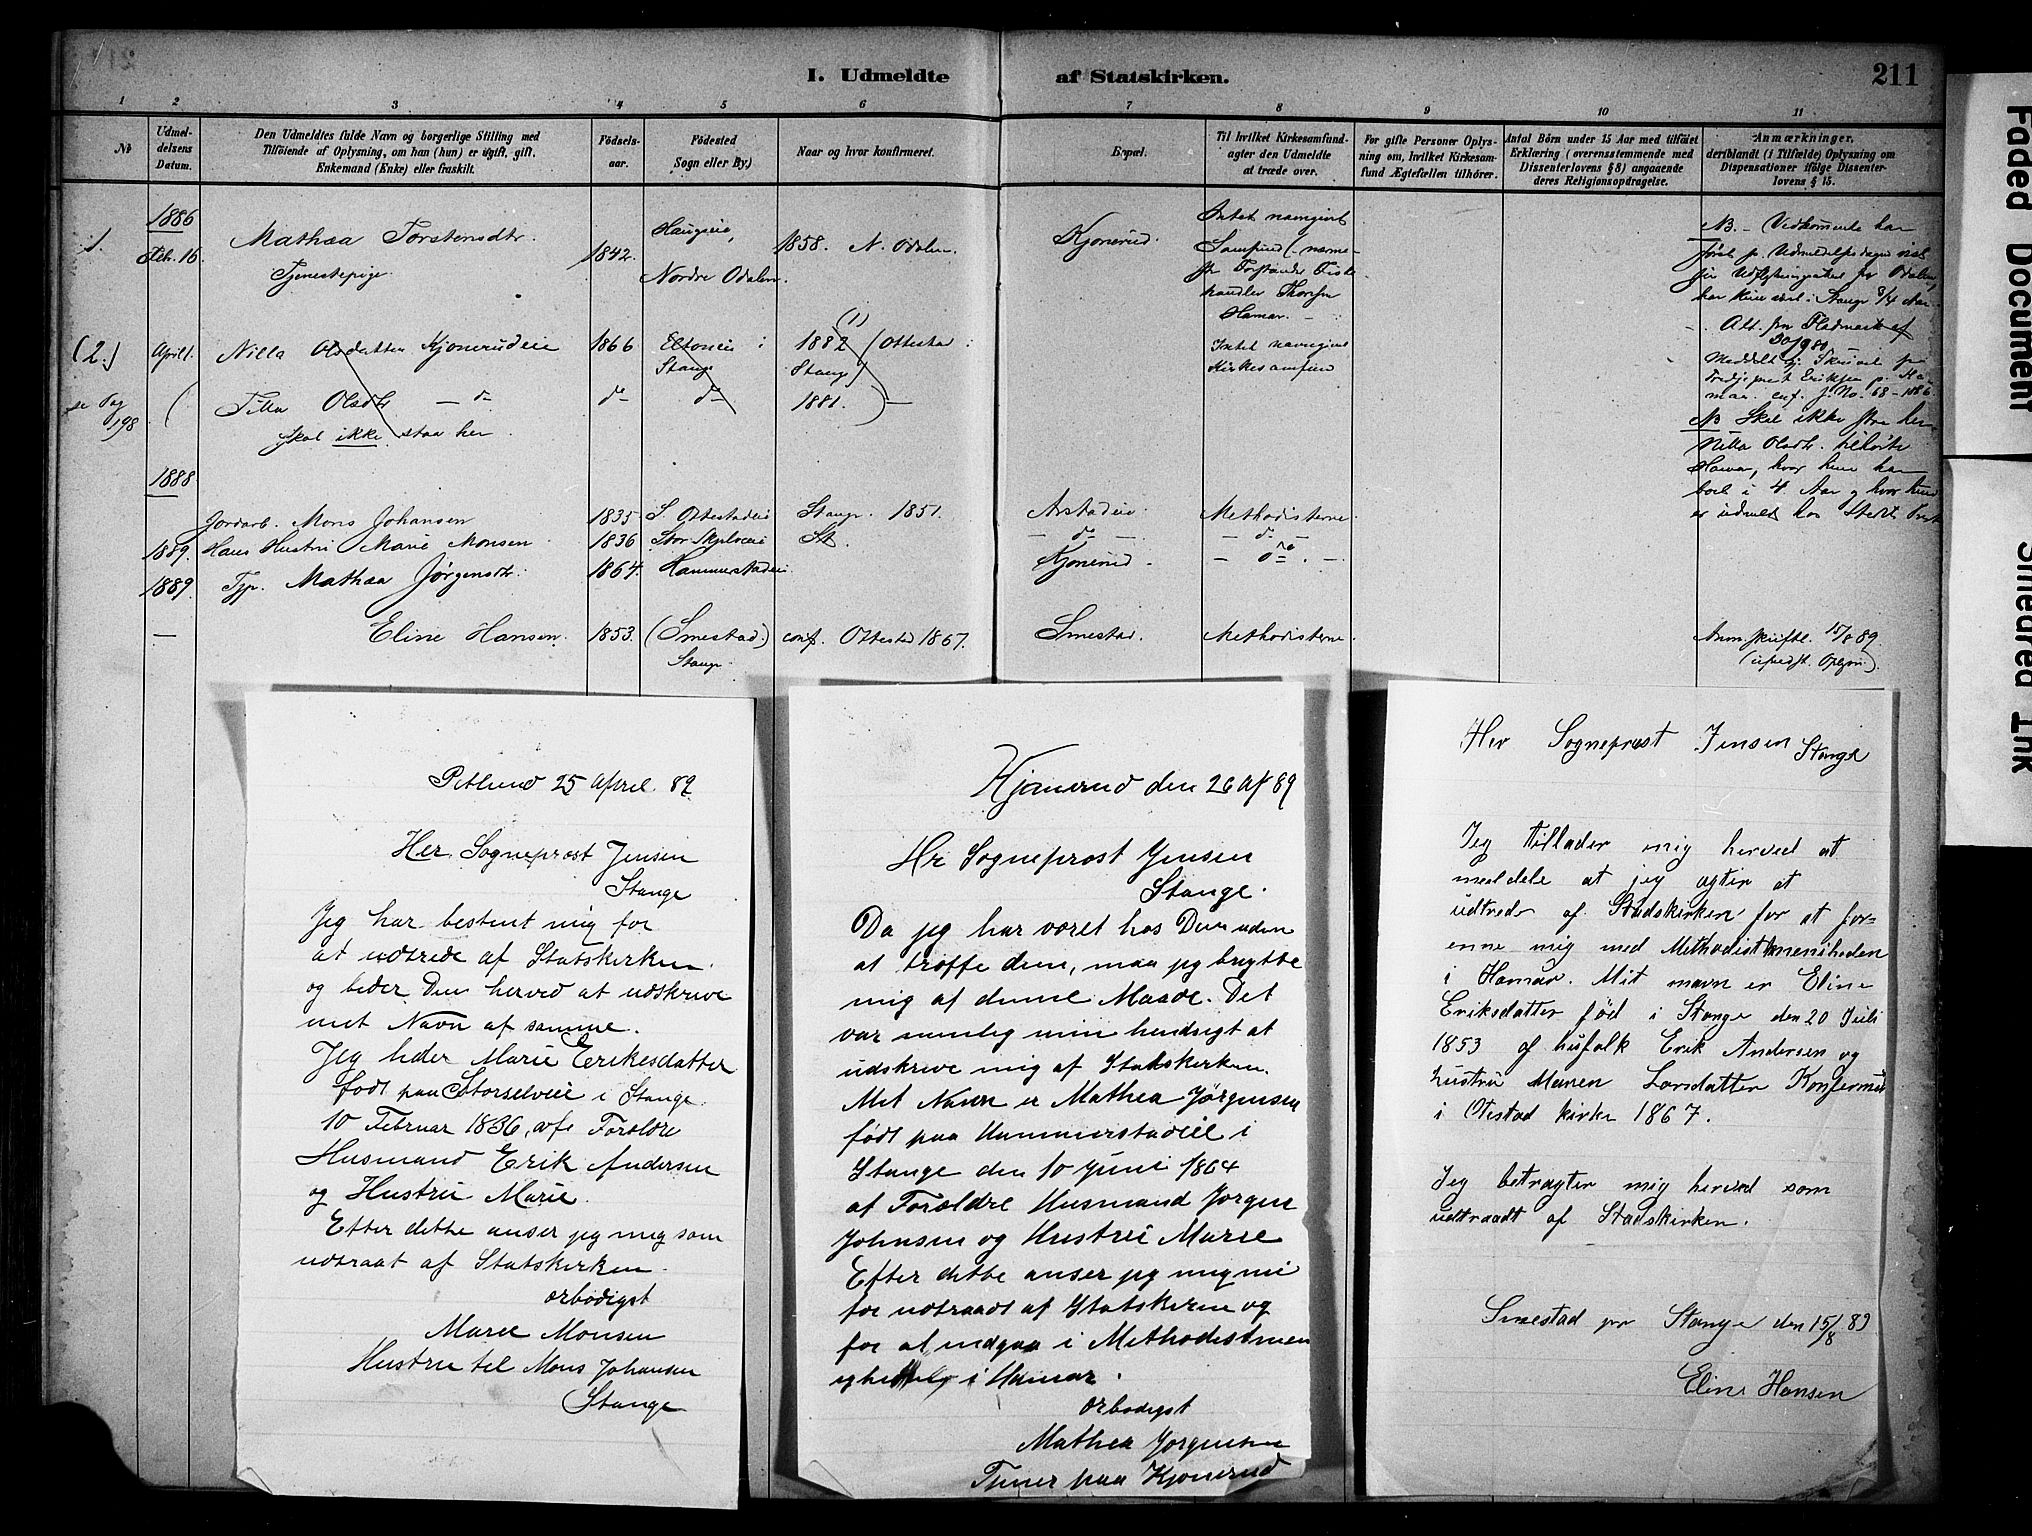 I. Udmeldte af Statskirken.
211
1 2 3 4 5 6 7 8 9 10 11
No
Udmel-
delsens
Datum.
Den Udmeldtes fulde Navn og borgerlige Stilling med
Tilføiende af Oplysning, om han (hun) er ugift, gift,
Enkemand (Enke) eller fraskilt.
Fødsels-
aar.
Fødested
Sogn eller By.)
Naar og hvor konfirmeret.
Bopæl.
Til hvilket Kirkesamfund-
agter den Udmeldte
at træde over.
For gifte Personer Oplys-
ning om, hvilket Kirkesam-
fund Ægtefællen tilhører.
Antal Børn under 15 Aar med tilføiet
Erklæring (overensstemmende med
Dissenterlovens § 8) angaaende
deres Religionsopdragelse.
Anmærkninger,
deriblandt (i Tilfælde) Oplysning om
Dispensationer ifølge Dissenter-
lovens § 15.
1886
1. Febr. 16 Mathea Torstensdtr. 1842. Haugseie, 1858. N. Odalen. Kjonerud. Intet navngivet
Tjenestepige Nordre Odalen. Samfund
Hamar.
NB. – Vedkommende har
(2.) April 1. Nilla Olsdatter Kjonerudeie 1866 i 1882 (1) (Ottestad Intet navngivet
Stange Stange) Kirkesamfund
se Pag 198 Tilla Olsdtr. – do do do 1881. –
Skal ikke staa her
NB Skal ikke staa her
Nilla Olsdtr. tilhørte
Hamar, hvor hun har
boet i 4 Aar og hvor hun
er udmeldt hos Stedets Præst
1888
Jordarb. Mons Johansen 1835 S. Ottestadeie Stange 1851. Arstadeie Methodisterne
1889. Hans Hustru Marie Monsen 1836 St. – do – – do –
1889 Tjp. Mathea Jørgensdtr. 1864. Hammerstadeie. Kjonerud. – do –
– Eline Hansen. 1853. (Smestad.) conf. Ottestad 1867. Smestad. Methodisterne. Anm. skriftl. 15/8 89.
Stange
25 April 89
Her Sogneprost Jensen
Stange
Jeg har bestemt mig for
at udtrede af Statskirken.
og beder Dem herved at udskrive
met Navn af samme.
Jeg heder Marie Erikesdatter
født paa Storselveie i Stange
10 Februar 1836, af Foroldre
Husmand Erik Andersen
og Hustru Marie
Efter dette anser jeg mig som
udtraat af Statskirken.
ørbødigst
Marie Monsen
Hustru til Mons Johansen
Stange
Kjonerud den 26 Ap 89
Hr Sogneprost Jensen
Stange.
Da jeg har voret hos Dem uden
at troffe dem, maa jeg benytte
mig af denne Maade. Det
var nemlig min hendsigt at
udskrive mig af Statskirken.
Met Navn er Mathea Jørgensen
født paa Hammerstadeie i
Stange den 10 Juni 1864
af Foroldre Husmand Jorgen
Johnsen og Hustru Marie
Efter dette anser jeg mig nu
for udtraadt af Statskirken og
for at indgaa i Methodistmen
igheden i Hamar.
ørbødigst
Mathea Jorgensen
Tjener paa Kjonerud
Her Sogneprost Jensen Stange
Jeg tillader mig herved at
meddele at jeg agter at
udtrede af Stadskirken for at for=
enne mig med Methodistmenigheden
i Hamar. Mit navn er Eline
Eriksdatter fød i Stange den 20 Juli
1853 af husfolk Erik Andersen og
hustru Maren Larsdatter Konfermert
i Otestad kirke 1867.
Jeg betragter mig herved som
udtraadt af Stadskirken.
Smestad pr Stange den 15/8 89
Eline Hansen
Faded Document
Smedred Ink